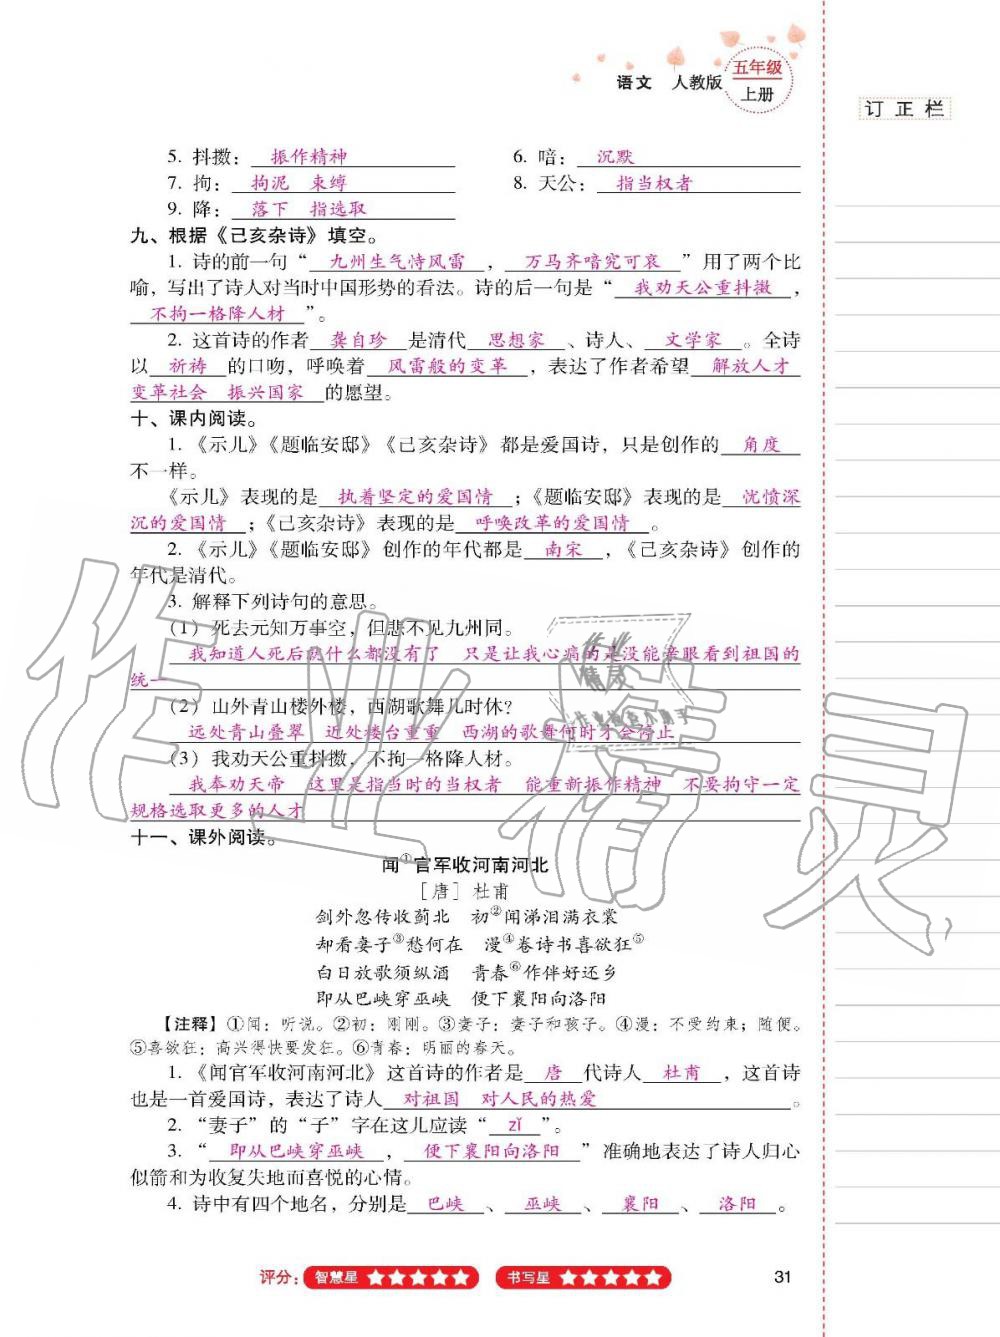 语文 人教版 五年级
上册
订正栏
5. 抖擞：振作精神 6. 喑：沉默
7. 拘：拘泥 束缚 8. 天公：指当权者
9. 降：落下 指选取
九、根据《己亥杂诗》填空。
1. 诗的前一句“九州生气恃风雷，万马齐喑究可哀”用了两个比
喻，写出了诗人对当时中国形势的看法。诗的后一句是“我劝天公重抖擞，
不拘一格降人材”。
2. 这首诗的作者龚自珍是清代思想家、诗人、文学家。全诗
以祈祷的口吻，呼唤着风雷般的变革，表达了作者希望解放人才
变革社会 振兴国家的愿望。
十、课内阅读。
1. 《示儿》《题临安邸》《己亥杂诗》都是爱国诗，只是创作的角度
不一样。
《示儿》表现的是执着坚定的爱国情；《题临安邸》表现的是忧愤深
沉的爱国情；《己亥杂诗》表现的是呼唤改革的爱国情。
2. 《示儿》《题临安邸》创作的年代都是南宋，《己亥杂诗》创作的
年代是清代。
3. 解释下列诗句的意思。
（1）死去元知万事空，但悲不见九州同。
我知道人死后就什么都没有了 只是让我心痛的是没能亲眼看到祖国的
统一
（2）山外青山楼外楼，西湖歌舞几时休？
远处青山叠翠 近处楼台重重 西湖的歌舞何时才会停止
（3）我劝天公重抖擞，不拘一格降人材。
我奉劝天帝 这里是指当时的当权者 能重新振作精神 不要拘守一定
规格选取更多的人才
十一、课外阅读。
闻①官军收河南河北
［唐］杜甫
剑外忽传收蓟北 初②闻涕泪满衣裳
却看妻子③愁何在 漫④卷诗书喜欲狂⑤
白日放歌须纵酒 青春⑥作伴好还乡
即从巴峡穿巫峡 便下襄阳向洛阳
【注释】①闻：听说。②初：刚刚。③妻子：妻子和孩子。④漫：不受约束；随便。
⑤喜欲狂：高兴得快要发狂。⑥青春：明丽的春天。
1. 《闻官军收河南河北》这首诗的作者是唐代诗人杜甫，这首诗
也是一首爱国诗，表达了诗人对祖国 对人民的热爱。
2. “妻子”的“子”字在这儿应读“zǐ”。
3. “即从巴峡穿巫峡，便下襄阳向洛阳”准确地表达了诗人归心
似箭和为收复失地而喜悦的心情。
4. 诗中有四个地名，分别是巴峡、巫峡、襄阳、洛阳。
评分：智慧星 书写星 31
作业精灵